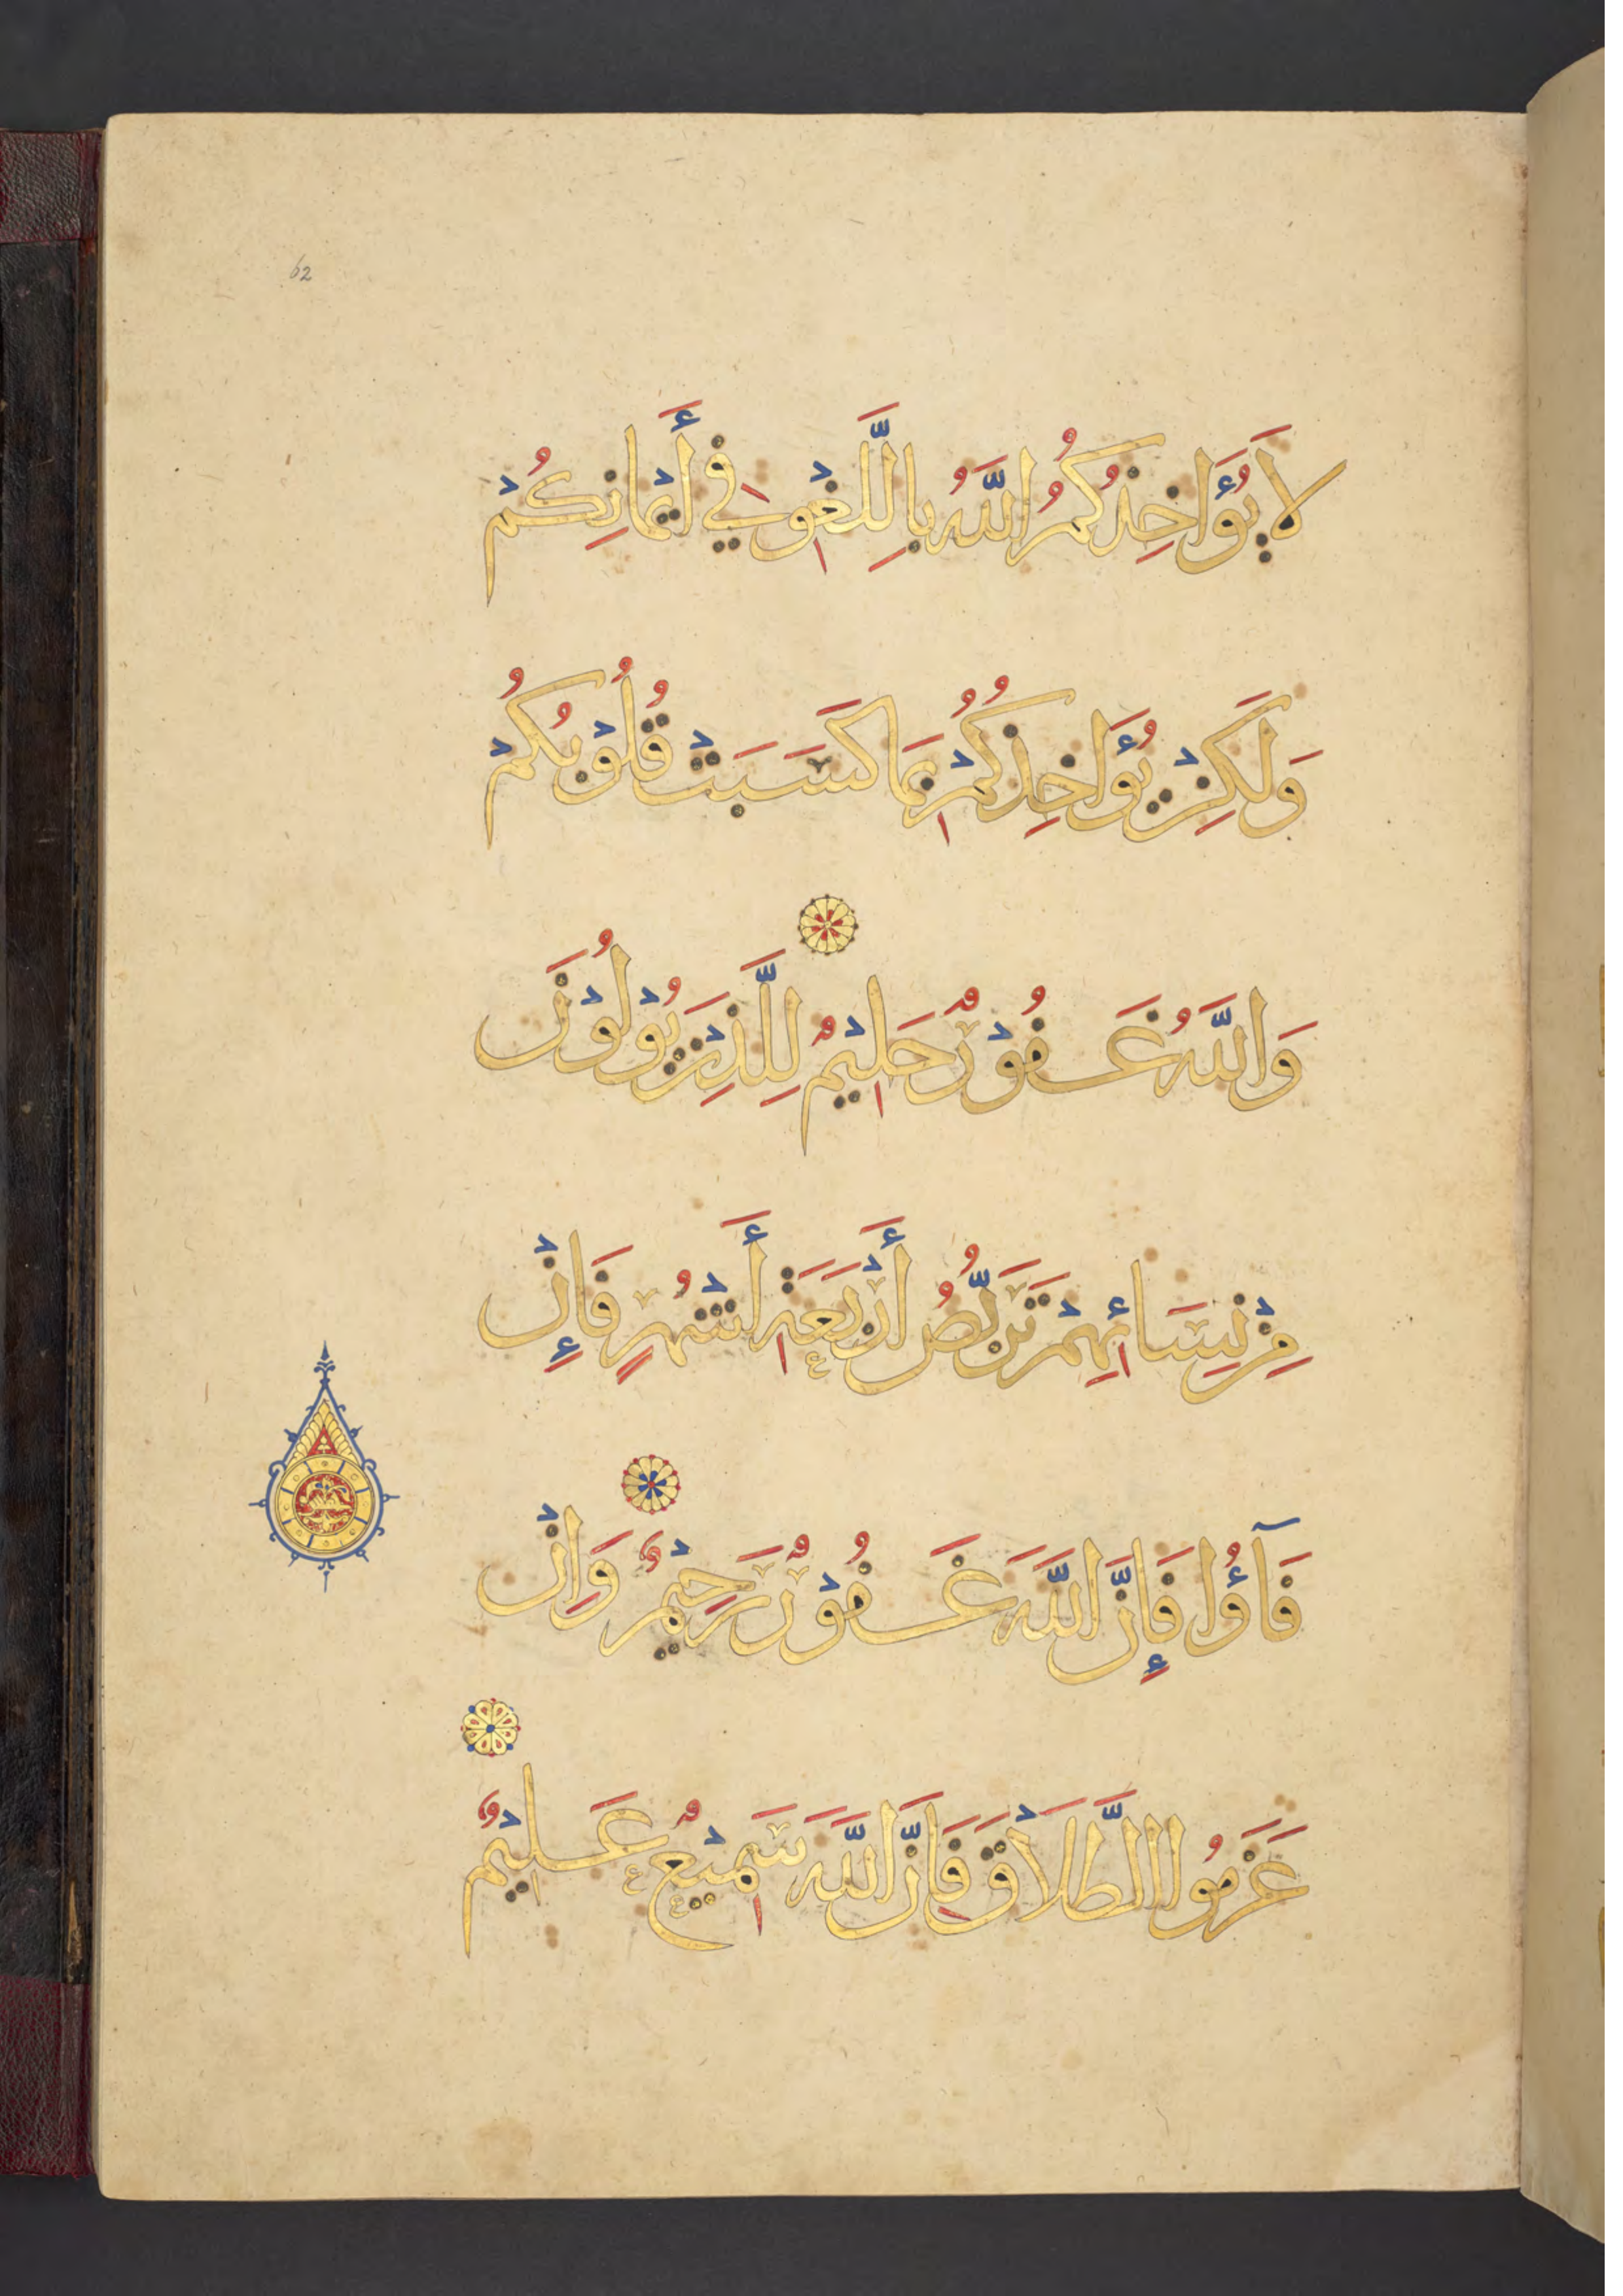 62
لَا يُؤَاخِذُكُمُ اللَّهُ بِاللَّغْوِ فِي أَيْمَانِكُمْ
وَلَكِنْ يُؤَاخِذُكُمْ بِمَا كَسَبَتْ قُلُوْبُكُمْ
وَاللَّهُ غَفُوْرٌ حَلِيْمٌ لِلَّذِيْنَ يُوْلُوْنَ
مِنْ نِسَائِهِمْ تَرَبُّصُ أَرْبَعَةِ أَشْهُرٍ فَإِنْ
فَآؤُا فَإِنَّ اللَّهَ غَفُوْرٌ رَحِيْمٌ وَاِنْ
عَزَمُوا الطَّلَاقَ فَاِنَّ اللَّهَ سَمِيْعٌ عَلِيْمٌ